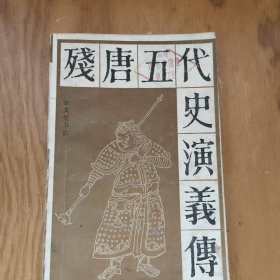 殘唐五代
史演義傳